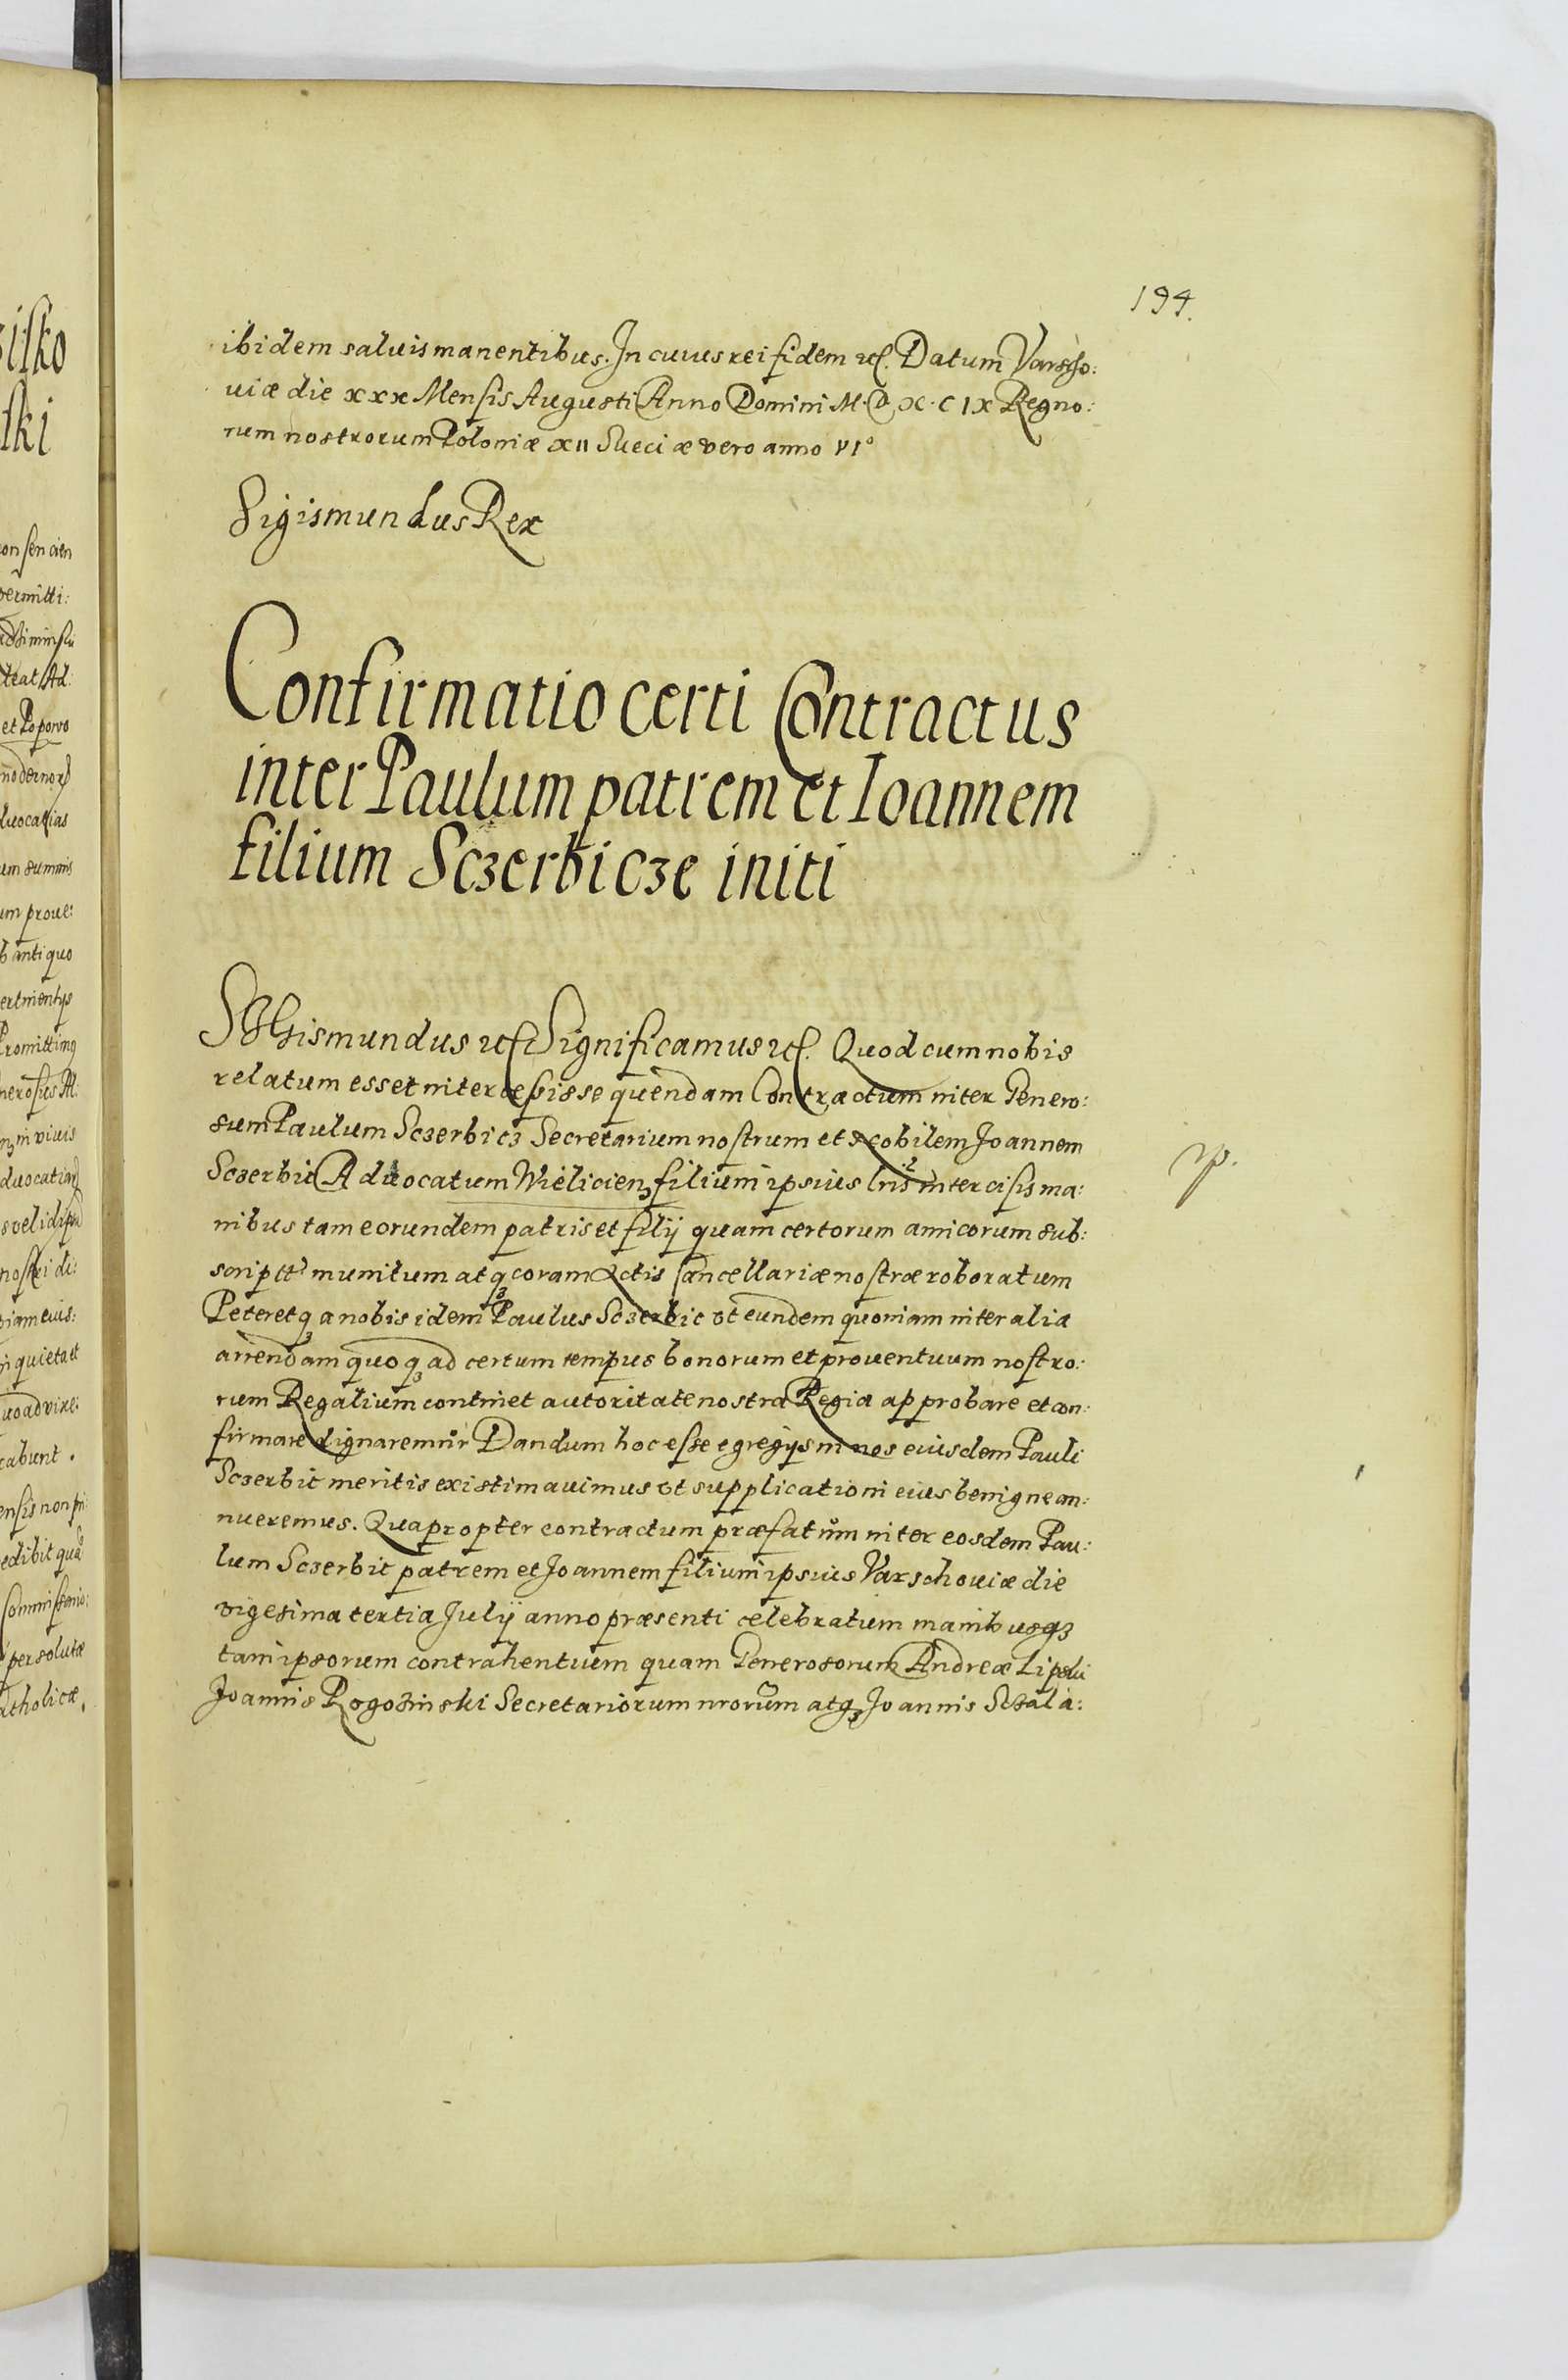 194.
ibidem saluis manentibus. In cuius rei fidem etc. Datum Varscho:
uiæ die xxx Mensis Augusti Anno Domini M.D.X.CIX Regno:
rum nostrorum Poloniæ XII Sueciæ vero anno VI°
Sigismundus Rex
Confirmatio certi Contractus
inter Paulum patrem et Ioannem
filium Sczerbicze initi
SIGismundus etc. Significamus etc. Quod cum nobis
relatum esset intercessisse quendam Contractum inter Genero:
sum Paulum Sczerbicz Secretarium nostrum et Nobilem Joannem
Sczerbic Aduocatum Wieliciens filium ipsius lris intercisis ma:
nibus tam eorundem patris et filij quam certorum amicorum sub:
script munitum atq coram Actis Cancellariæ nostræ roboratum
Peteretq a nobis idem Paulus Sczerbic vt eundem quoniam inter alia
arrendam quoq ad certum tempus bonorum et prouentuum nostro:
rum Regalium continet autoritate nostra Regia approbare et con:
firmare dignaremur Dandum hoc esse egregijs in nos eiusdem Pauli
Sczerbic meritis existimauimus vt supplicationi eius benigne an:
nueremus. Quapropter contractum præfatum inter eosdem Pau:
lum Sczerbic patrem et Joannem filium ipsius Varschouiæ die
vigesima tertia Julij anno præsenti celebratum manibusq
tam ipsorum contrahentium quam Generosorum Andreæ Lipski
Joannis Rogozinski Secretariorum nrorum atq Joannis Skala: